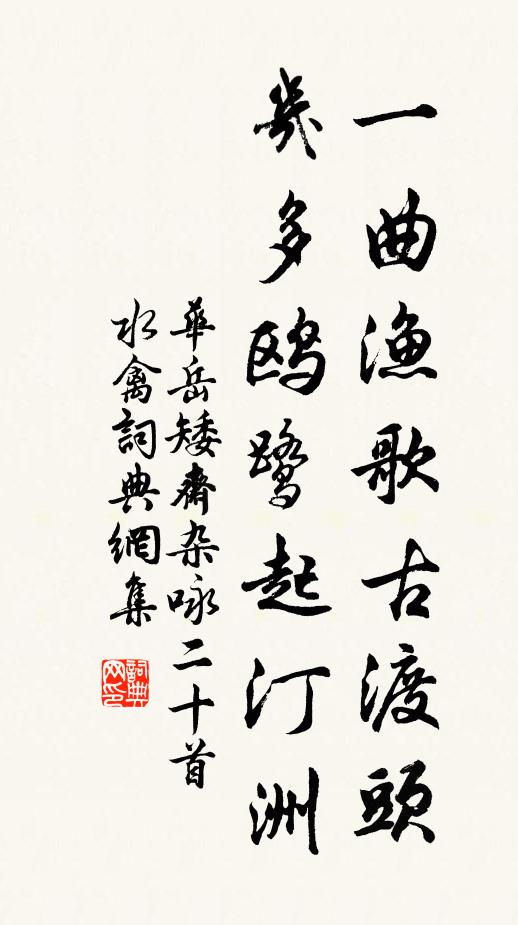 一曲漁歌古渡頭
幾多鷗鷺起汀洲
華岳矮齋杂咏二十首
水禽詞典網集
詞典网印